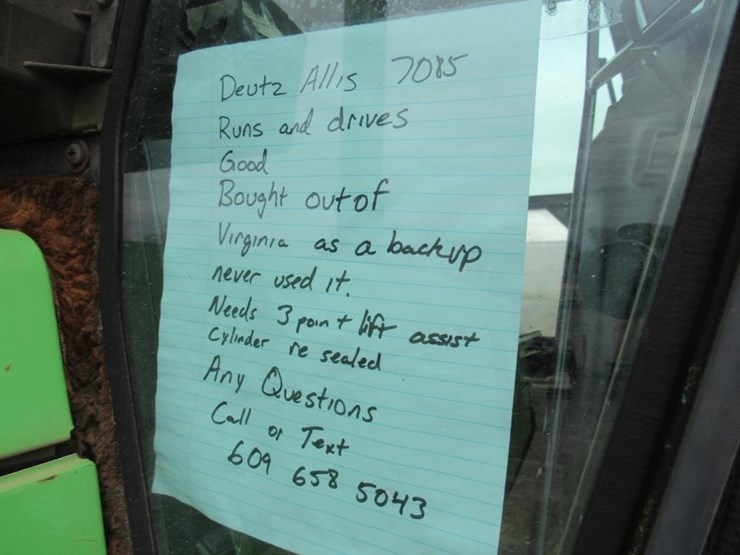 Deutz Allis 7085
Runs and drives
Good
Bought out of
Virginia as a backup
never used it.
Needs 3 point lift assist
Cylinder re sealed
Any Questions
Call or Text
609 658 5043